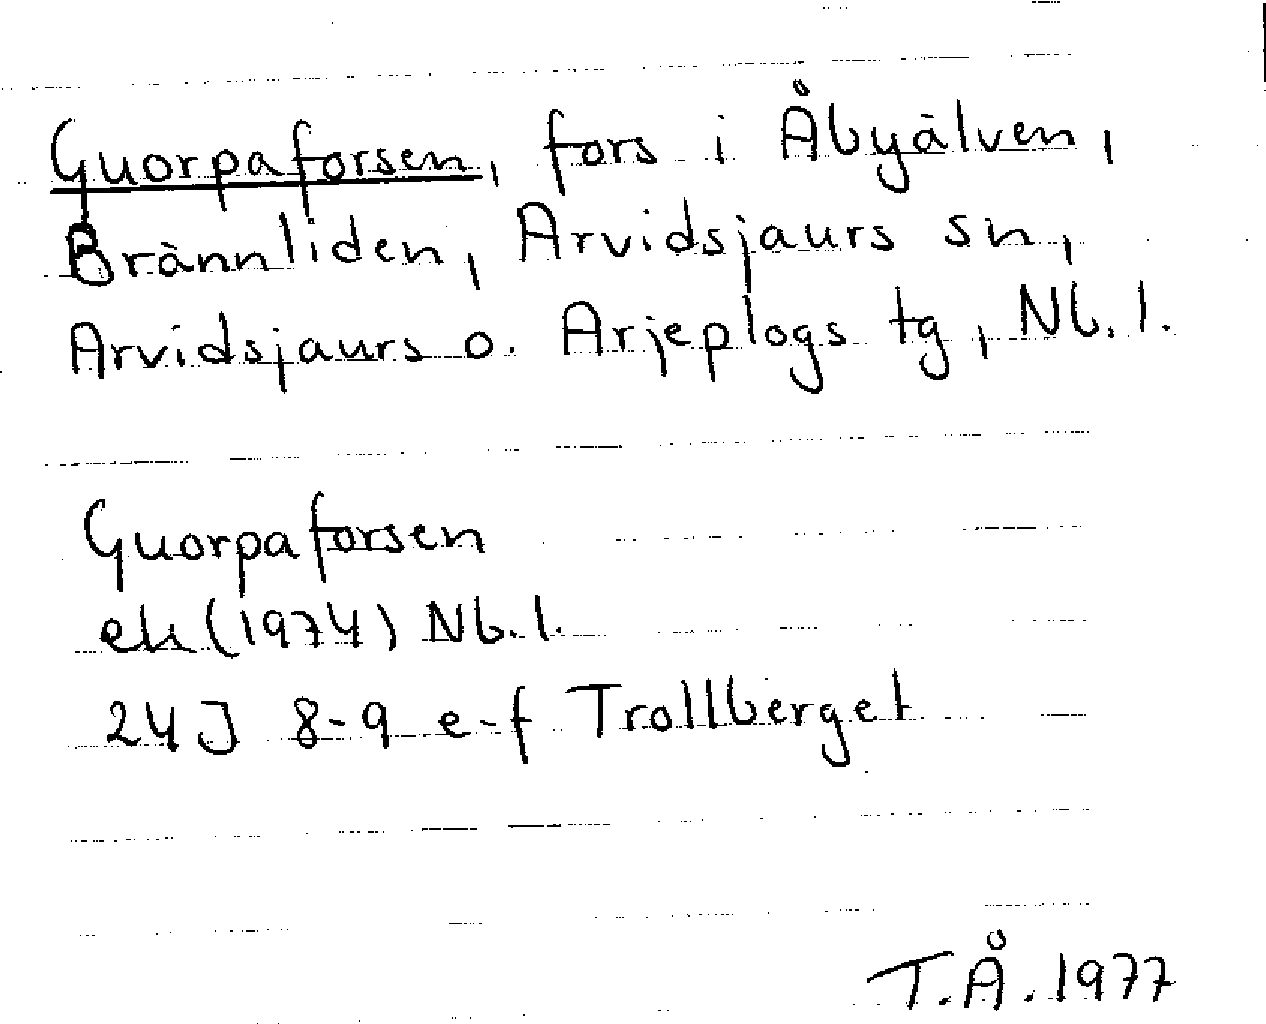 Guorpaforsen, fors i Åbyälven,
Brännliden, Arvidsjaurs sn,
Arvidsjaurs o. Arjeplogs tg, Nb.l.
Guorpaforsen
ek (1974) Nb.l.
24J 8-9 e-f Trollberget
T.Å. 1977